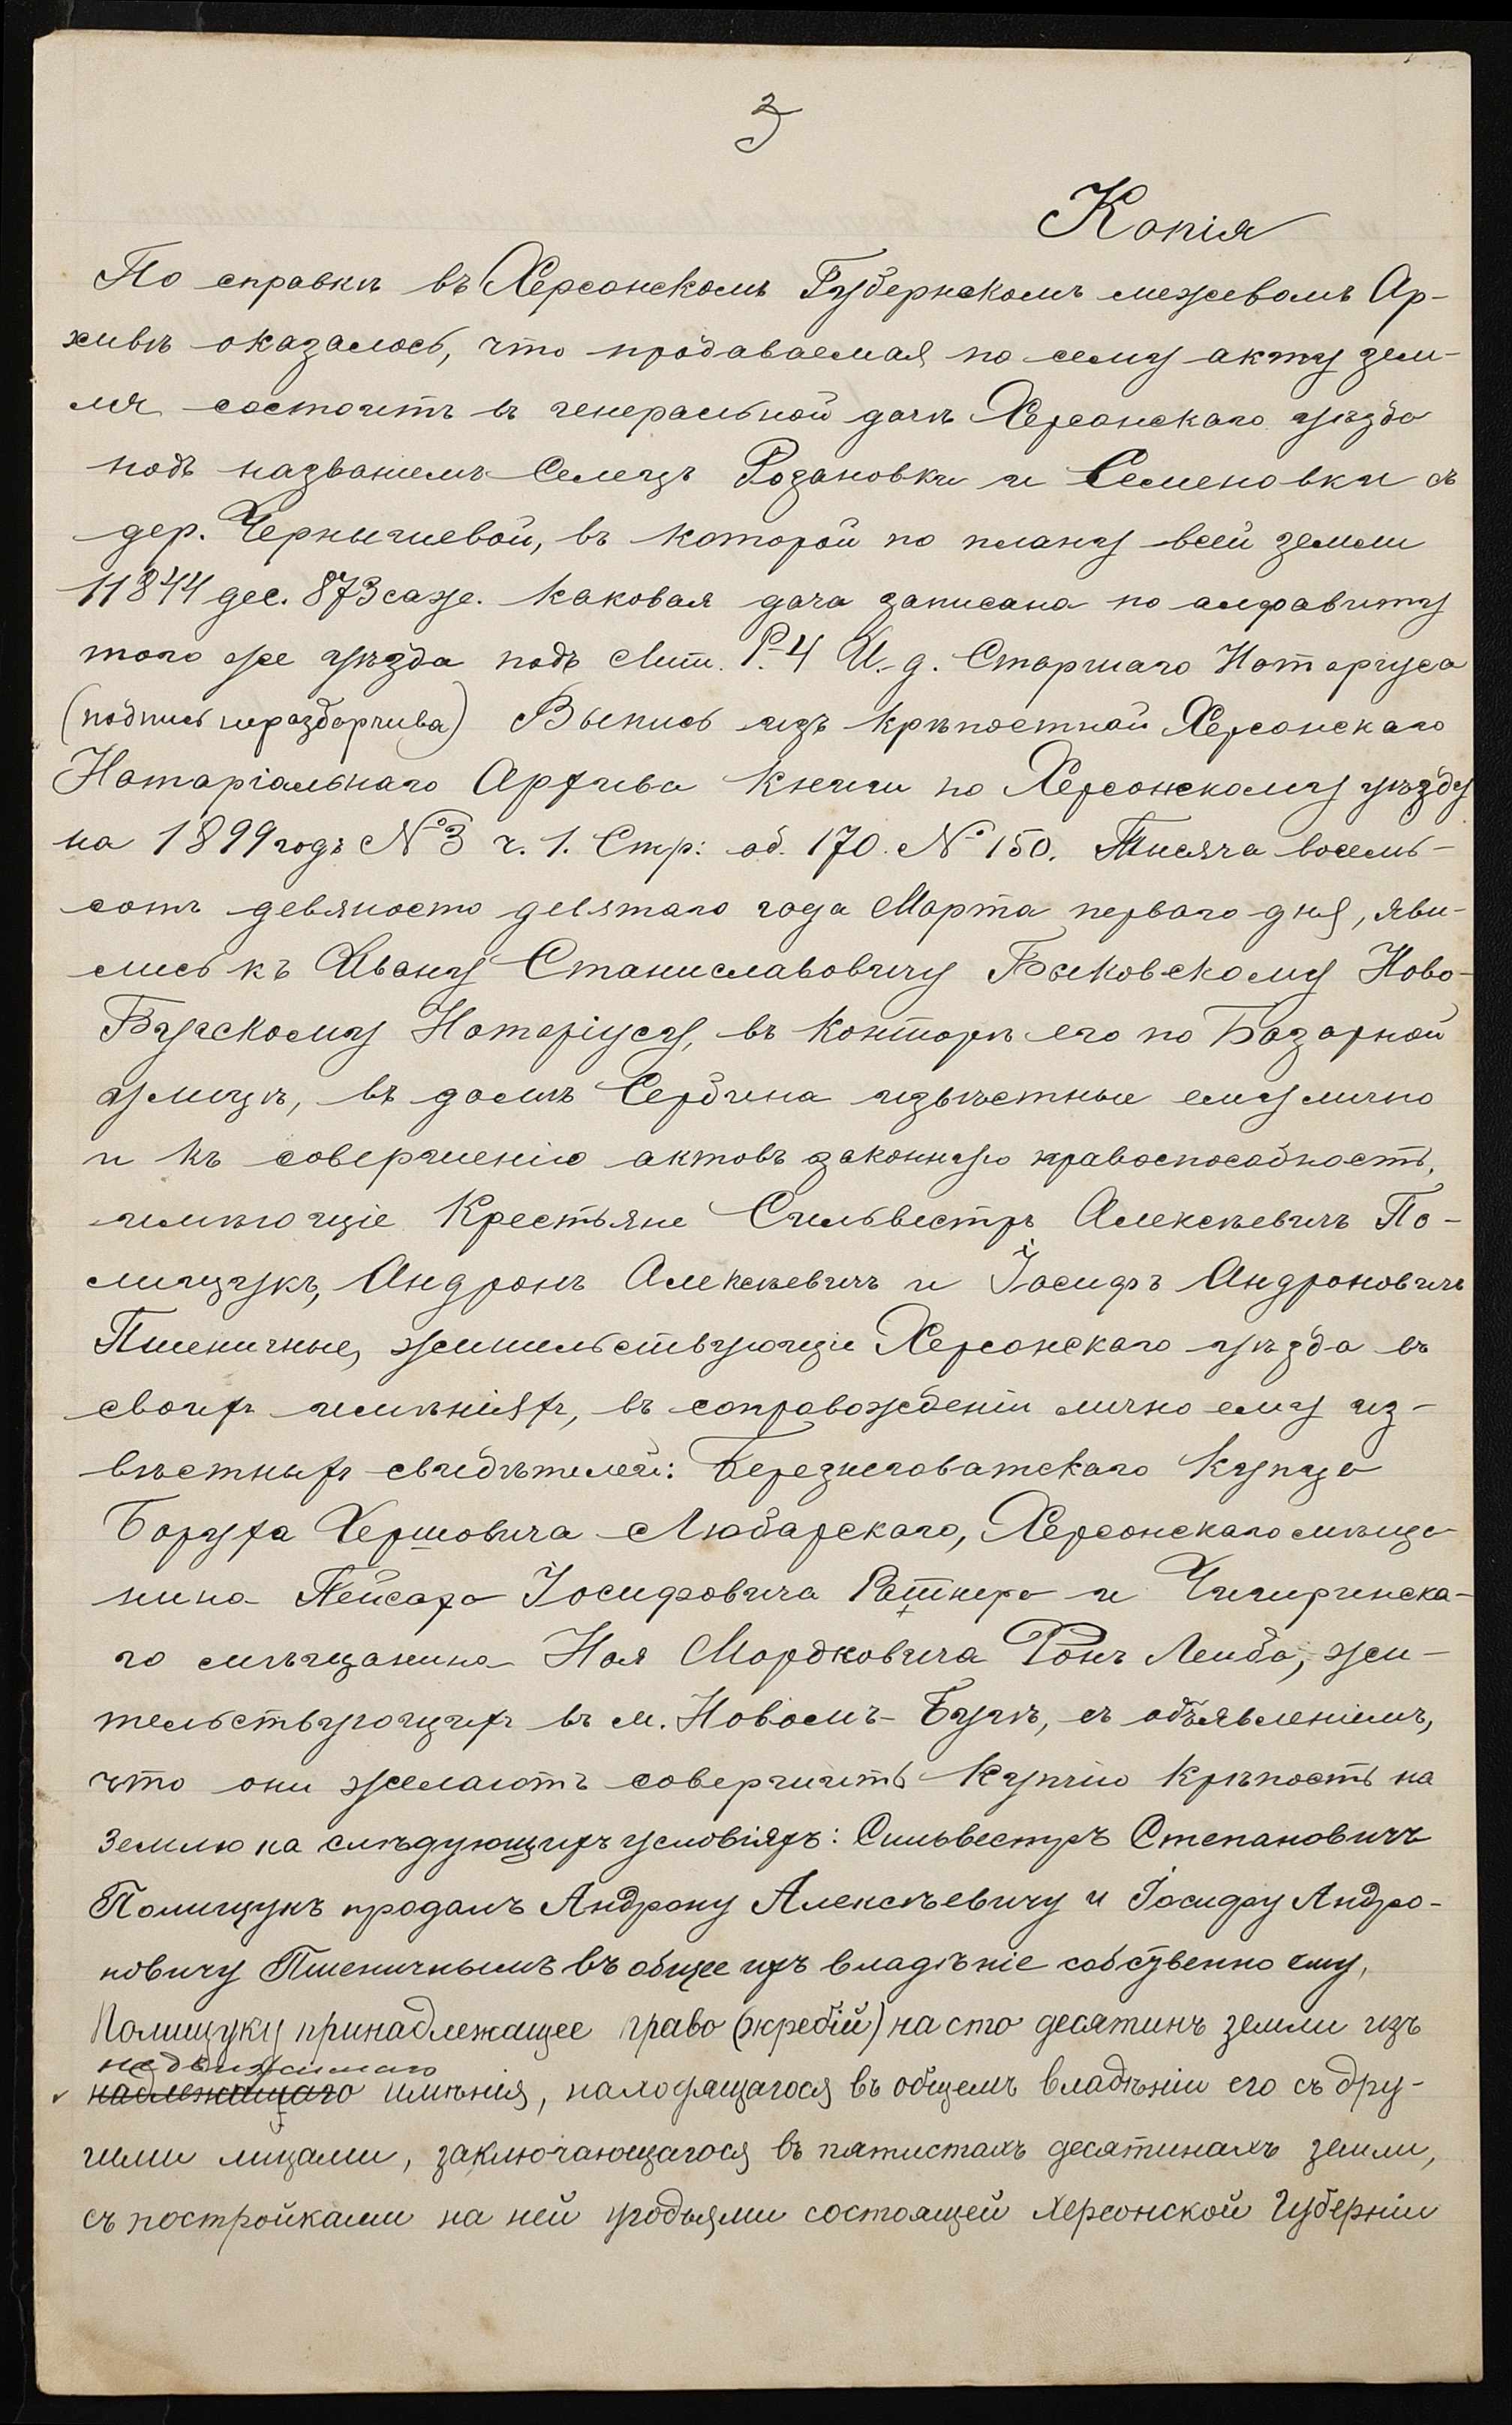 3
Копія
По справкѣ въ Херсонскомъ Губернскомъ межевомъ Ар-
хивѣ оказалось, что продаваемая по сему акту зем-
ля состоитъ въ генеральной дачѣ Херсонскаго уѣзда
подъ названіемъ Селецъ Розановки и Семеновки съ
дер. Чернышевой, въ которой по плану всей земли
11844 дес. 873 саж. каковая дача записана по алфавиту
того же уѣзда подъ Лит. Р. 4 И. д. Старшаго Нотаріуса
(подпись неразборчива) Выпись изъ крѣпостной Херсонскаго
Нотаріальнаго Архива книги по Херсонскому уѣзду
на 1899 годъ № 3 ч. 1. Стр: об. 170. № 150. Тысяча восемь-
сотъ девяносто девятаго года Марта перваго дня, яви-
лись къ Ивану Станиславовичу Быковскому Ново-
Бугскому Нотаріусу, въ конторѣ его по Базарной
улицѣ, въ домѣ Сербина извѣстные ему лично
и къ совершенію актовъ законную правоспособность,
имѣющіе Крестьяне Сильвестръ Алексѣевичъ По-
лищукъ, Андронъ Алексѣевичъ и Іосифъ Андроновичъ
Пшеничные, жительствующіе Херсонскаго уѣзда въ
своихъ имѣніяхъ, въ сопровожденіи лично ему из-
вѣстныхъ свидѣтелей: Березнеговатскаго купца
Боруха Хершовича Любарскаго, Херсонскаго мѣща-
нина Пейсаха Іосифовича Ратнера и Чигиринска-
го мѣщанина Ноя Мордковича Ронъ Лейба, жи-
тельствующихъ въ м. Новомъ-Бугѣ, съ объявленіемъ,
что они желаютъ совершить купчую крѣпость на
землю на слѣдующихъ условіяхъ: Сильвестръ Степановичъ
Полищукъ продалъ Андрону Алексѣевичу и Іосифу Андро-
новичу Пшеничнымъ въ общее ихъ владѣніе собственно ему,
Полищуку принадлежащее право (жребій) на сто десятинъ земли изъ
недвижимаго
надлежащаго имѣнія, находящагося въ общемъ владѣніи его съ дру-
гими лицами, заключающагося въ пятистахъ десятинахъ земли,
съ постройками на ней угодьями состоящей Херсонской Губерніи